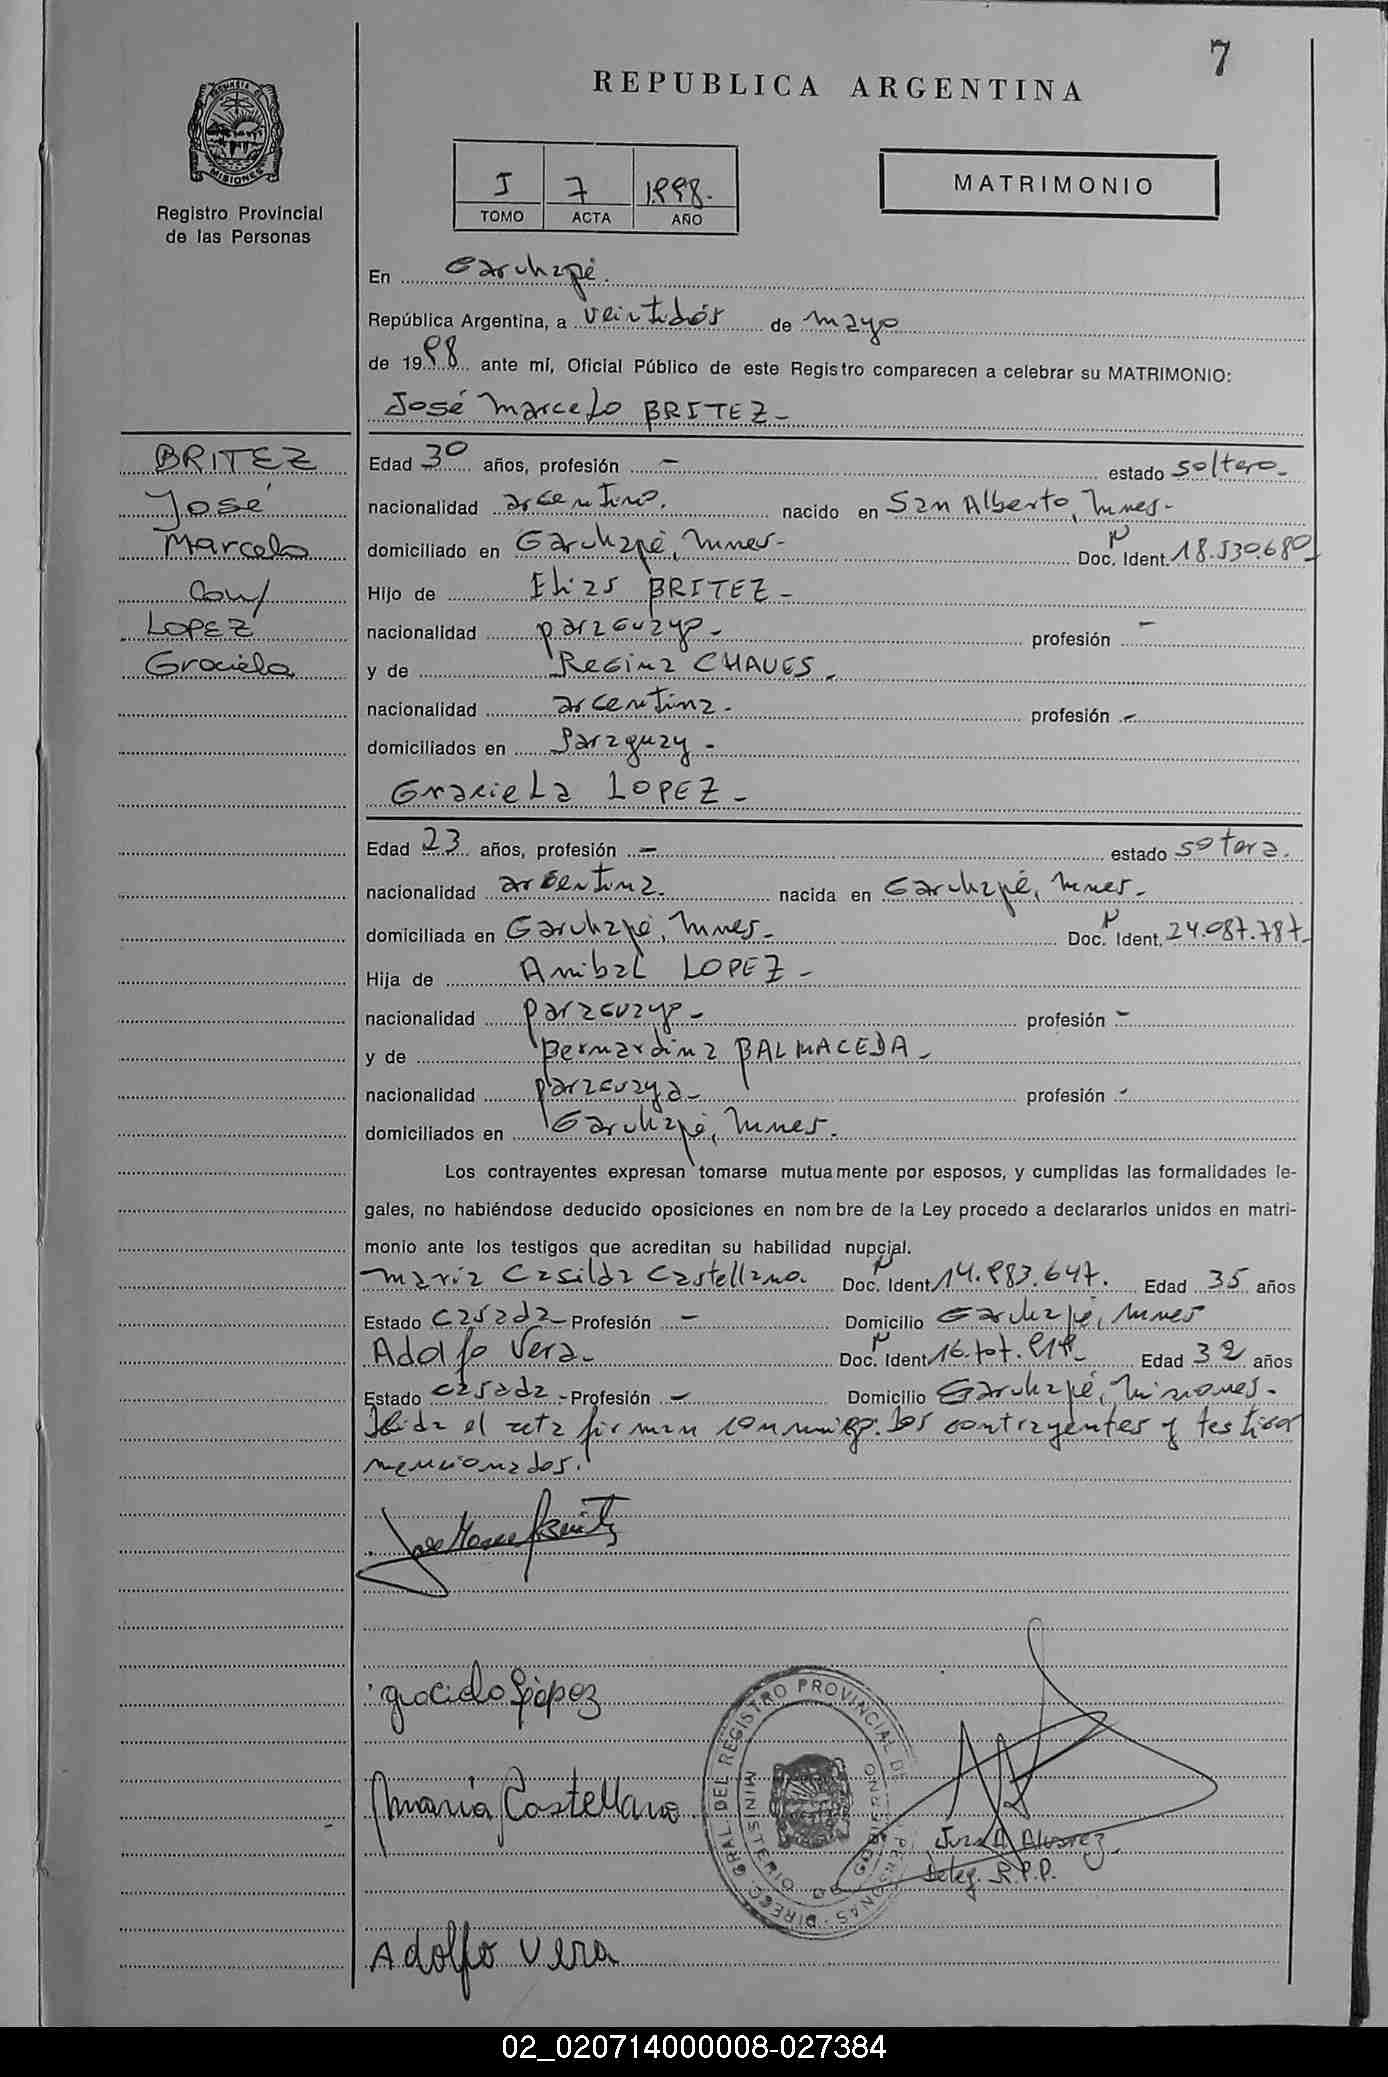 7
REPUBLICA ARGENTINA
PROVINCIA DE MISIONES
Registro Provincial
de las Personas
I 7 1998.
TOMO ACTA AÑO
MATRIMONIO
En Garuhapé.
República Argentina, a veintidós de mayo
de 1998 ante mí, Oficial Público de este Registro comparecen a celebrar su MATRIMONIO:
José Marcelo BRITEZ-
BRITEZ
José
Marcelo
Con/
LOPEZ
Graciela
Edad 30 años, profesión - estado soltero-
nacionalidad argentino. nacido en San Alberto, Mnes-
domiciliado en Garuhapé, Mnes- Doc. Ident. 18.530.680
Hijo de Elias BRITEZ-
nacionalidad paraguayo- profesión -
y de Regina CHAVES-
nacionalidad argentina- profesión -
domiciliados en Paraguay-
Graciela LOPEZ-
Edad 23 años, profesión - estado sotera.
nacionalidad argentina. nacida en Garuhapé, Mnes-
domiciliada en Garuhapé, Mnes- Doc. Ident. 24.087.787-
Hija de Anibal LOPEZ-
nacionalidad paraguayo- profesión -
y de Bernardina BALMACEDA-
nacionalidad paraguaya- profesión -
domiciliados en Garuhapé, Mnes.
Los contrayentes expresan tomarse mutuamente por esposos, y cumplidas las formalidades le-
gales, no habiéndose deducido oposiciones en nombre de la Ley procedo a declararlos unidos en matri-
monio ante los testigos que acreditan su habilidad nupcial.
María Casilda Castellano. Doc. Ident. 14.983.647. Edad 35 años
Estado casada- Profesión - Domicilio Garuhapé, Mnes
Adolfo Vera- Doc. Ident. Edad 32 años
Estado casada- Profesión - Domicilio Garuhapé, Misiones-
Leida el acta firman conmigo los contrayentes y testigos
mencionados.
Jose Marcelo Britez
graciela López
María Castellano
DIREC. GRAL. DEL REGISTRO PROVINCIAL DE PERSONAS
MINISTERIO DE GOBIERNO
Juan A. Alvarez
Deleg. R.P.P.
Adolfo Vera
02_020714000008-027384